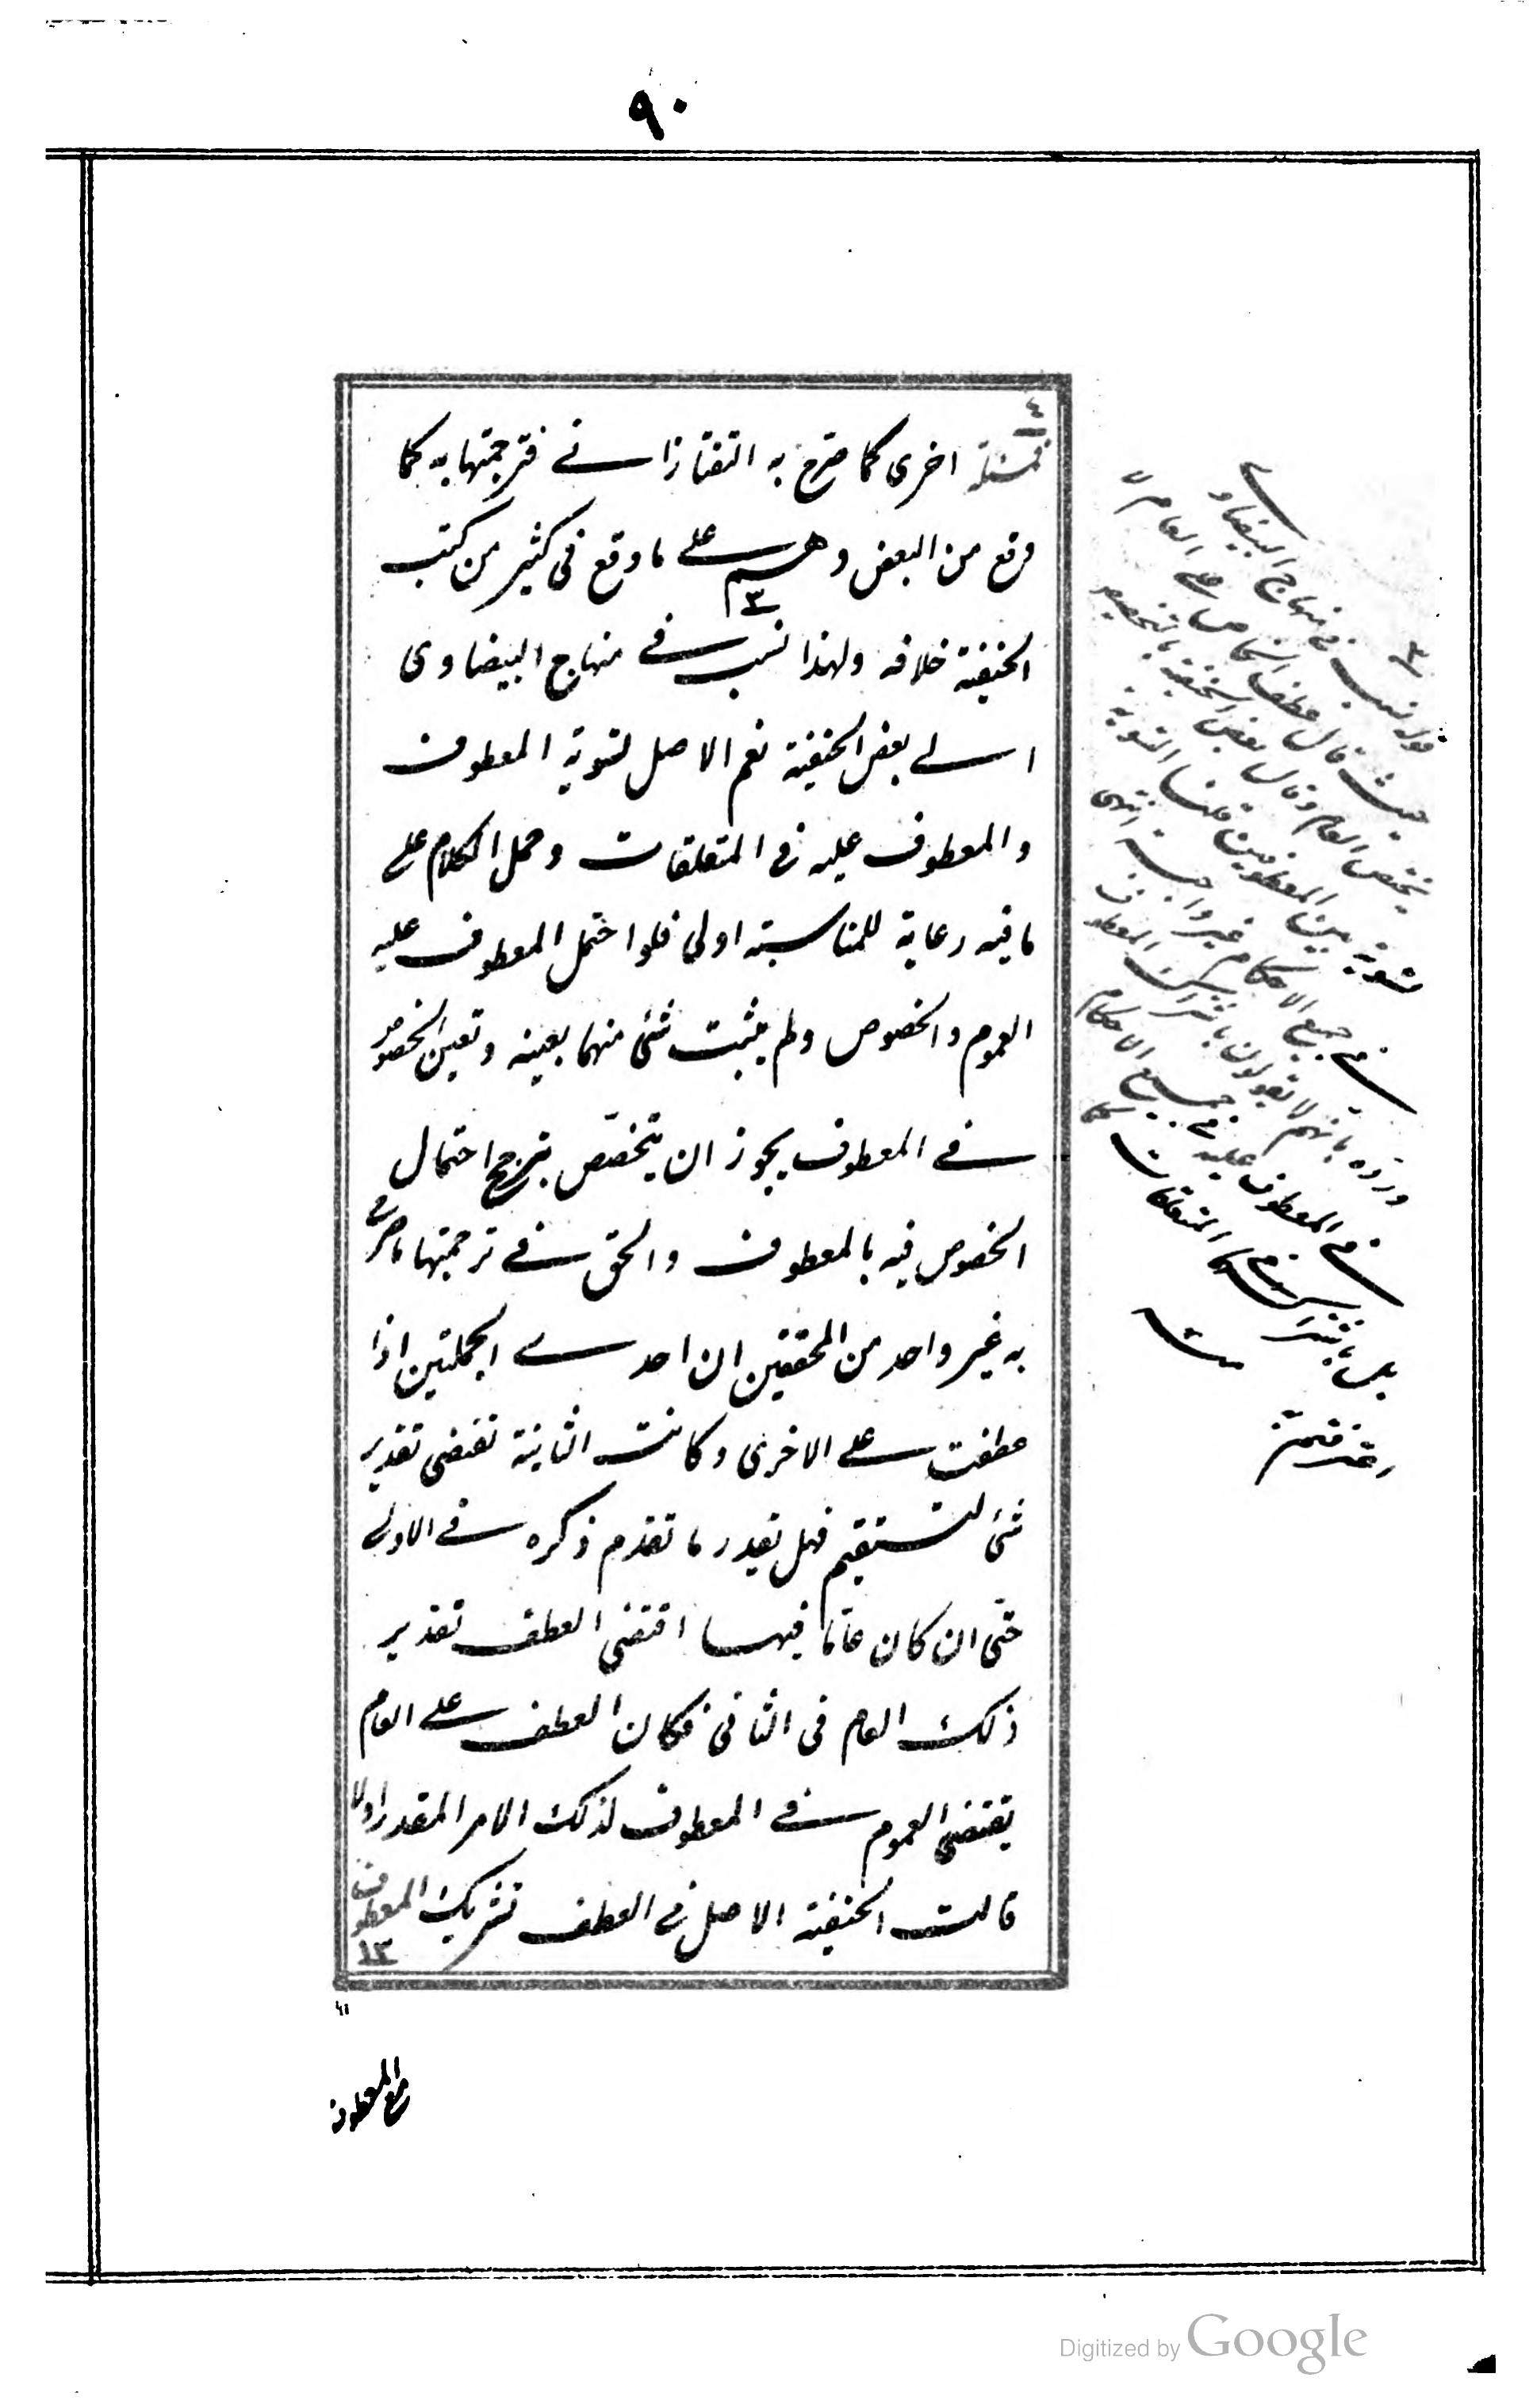 ٩٠
٤
فمسئلة اخرى كما صرح به التفتازانے فترجمتها به كما
وقع من البعض وهم علے ما وقع فى كثير من كتب
٣
الحنفية خلافه ولهذا نسب فے منهاج البيضاوى
الے بعض الحنفية نعم الاصل تسوية المعطوف
والمعطوف عليه فى المتعلقات وحمل الكلام على
ما فيه رعاية للمناسبة اولى فلو احتمل المعطوف عليه
العموم والخصوص ولم يثبت شئ منهما بعينه وتعين الخصوص
فے المعطوف يجوز ان يتخصّص بترجح احتمال
الخصوص فيه بالمعطوف والحق فے ترجمتها ما صرح
به غير واحد من المحققين ان احدے الجملتين اذا
عطفت علے الاخرى وكانت الثانية تقتضى تقدير
شئ لتستقيم فهل تقدر ما تقدم ذكره فے الاولى
حتّى ان كان عامّا فيها اقتضى العطف تقدير
ذلك العام فى الثانى فكان العطف علے العام
يقتضى العموم فے المعطوف لذلك الامر المقدر اولا
قالت الحنفية الاصل فى العطف تشريك المعطوف
١٣
مع المعطوف
٣
قوله نسب فى منهاج البيضاوے
حيث قال عطف الخاص على العام لا
يخصّص العام وقال بعض الحنفية بالتخصيص
تسوية بين المعطوفين قلنا التسوية
فے جميع الاحكام غير واجبة انتهى
وردّه بانهم لا يقولون باشتراك المعطوف
فے المعطوف عليه فى جميع الاحكام
بل باشتراكهما فے المتعلقات كما
Digitized by Google